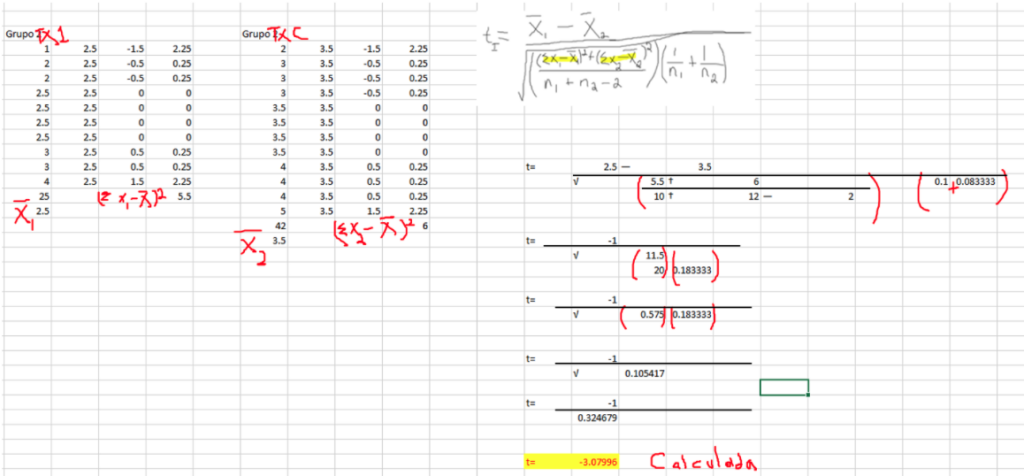 Grupo 2 TX 1
1 2.5 -1.5 2.25
2 2.5 -0.5 0.25
2 2.5 -0.5 0.25
2.5 2.5 0 0
2.5 2.5 0 0
2.5 2.5 0 0
2.5 2.5 0 0
3 2.5 0.5 0.25
3 2.5 0.5 0.25
4 2.5 1.5 2.25
25 (Σ x₁-X̄)² 5.5
X̄₁ 2.5
Grupo TX C
2 3.5 -1.5 2.25
3 3.5 -0.5 0.25
3 3.5 -0.5 0.25
3 3.5 -0.5 0.25
3.5 3.5 0 0
3.5 3.5 0 0
3.5 3.5 0 0
3.5 3.5 0 0
4 3.5 0.5 0.25
4 3.5 0.5 0.25
4 3.5 0.5 0.25
5 3.5 1.5 2.25
42 (Σx₂-X̄)² 6
X̄₂ 3.5
t_I = X̄₁ - X̄₂
√(((Σx₁-X̄₁)²+(Σx₂-X̄₂)²
n₁+n₂-2) (1/n₁ + 1/n₂)
t= 2.5 - 3.5
√ (5.5 + 6 (0.1 + 0.083333)
10 + 12 - 2)
t= -1
√ (11.5
20) (0.183333)
t= -1
√ (0.575) (0.183333)
t= -1
√ 0.105417
t= -1
0.324679
t= -3.07996 Calculada